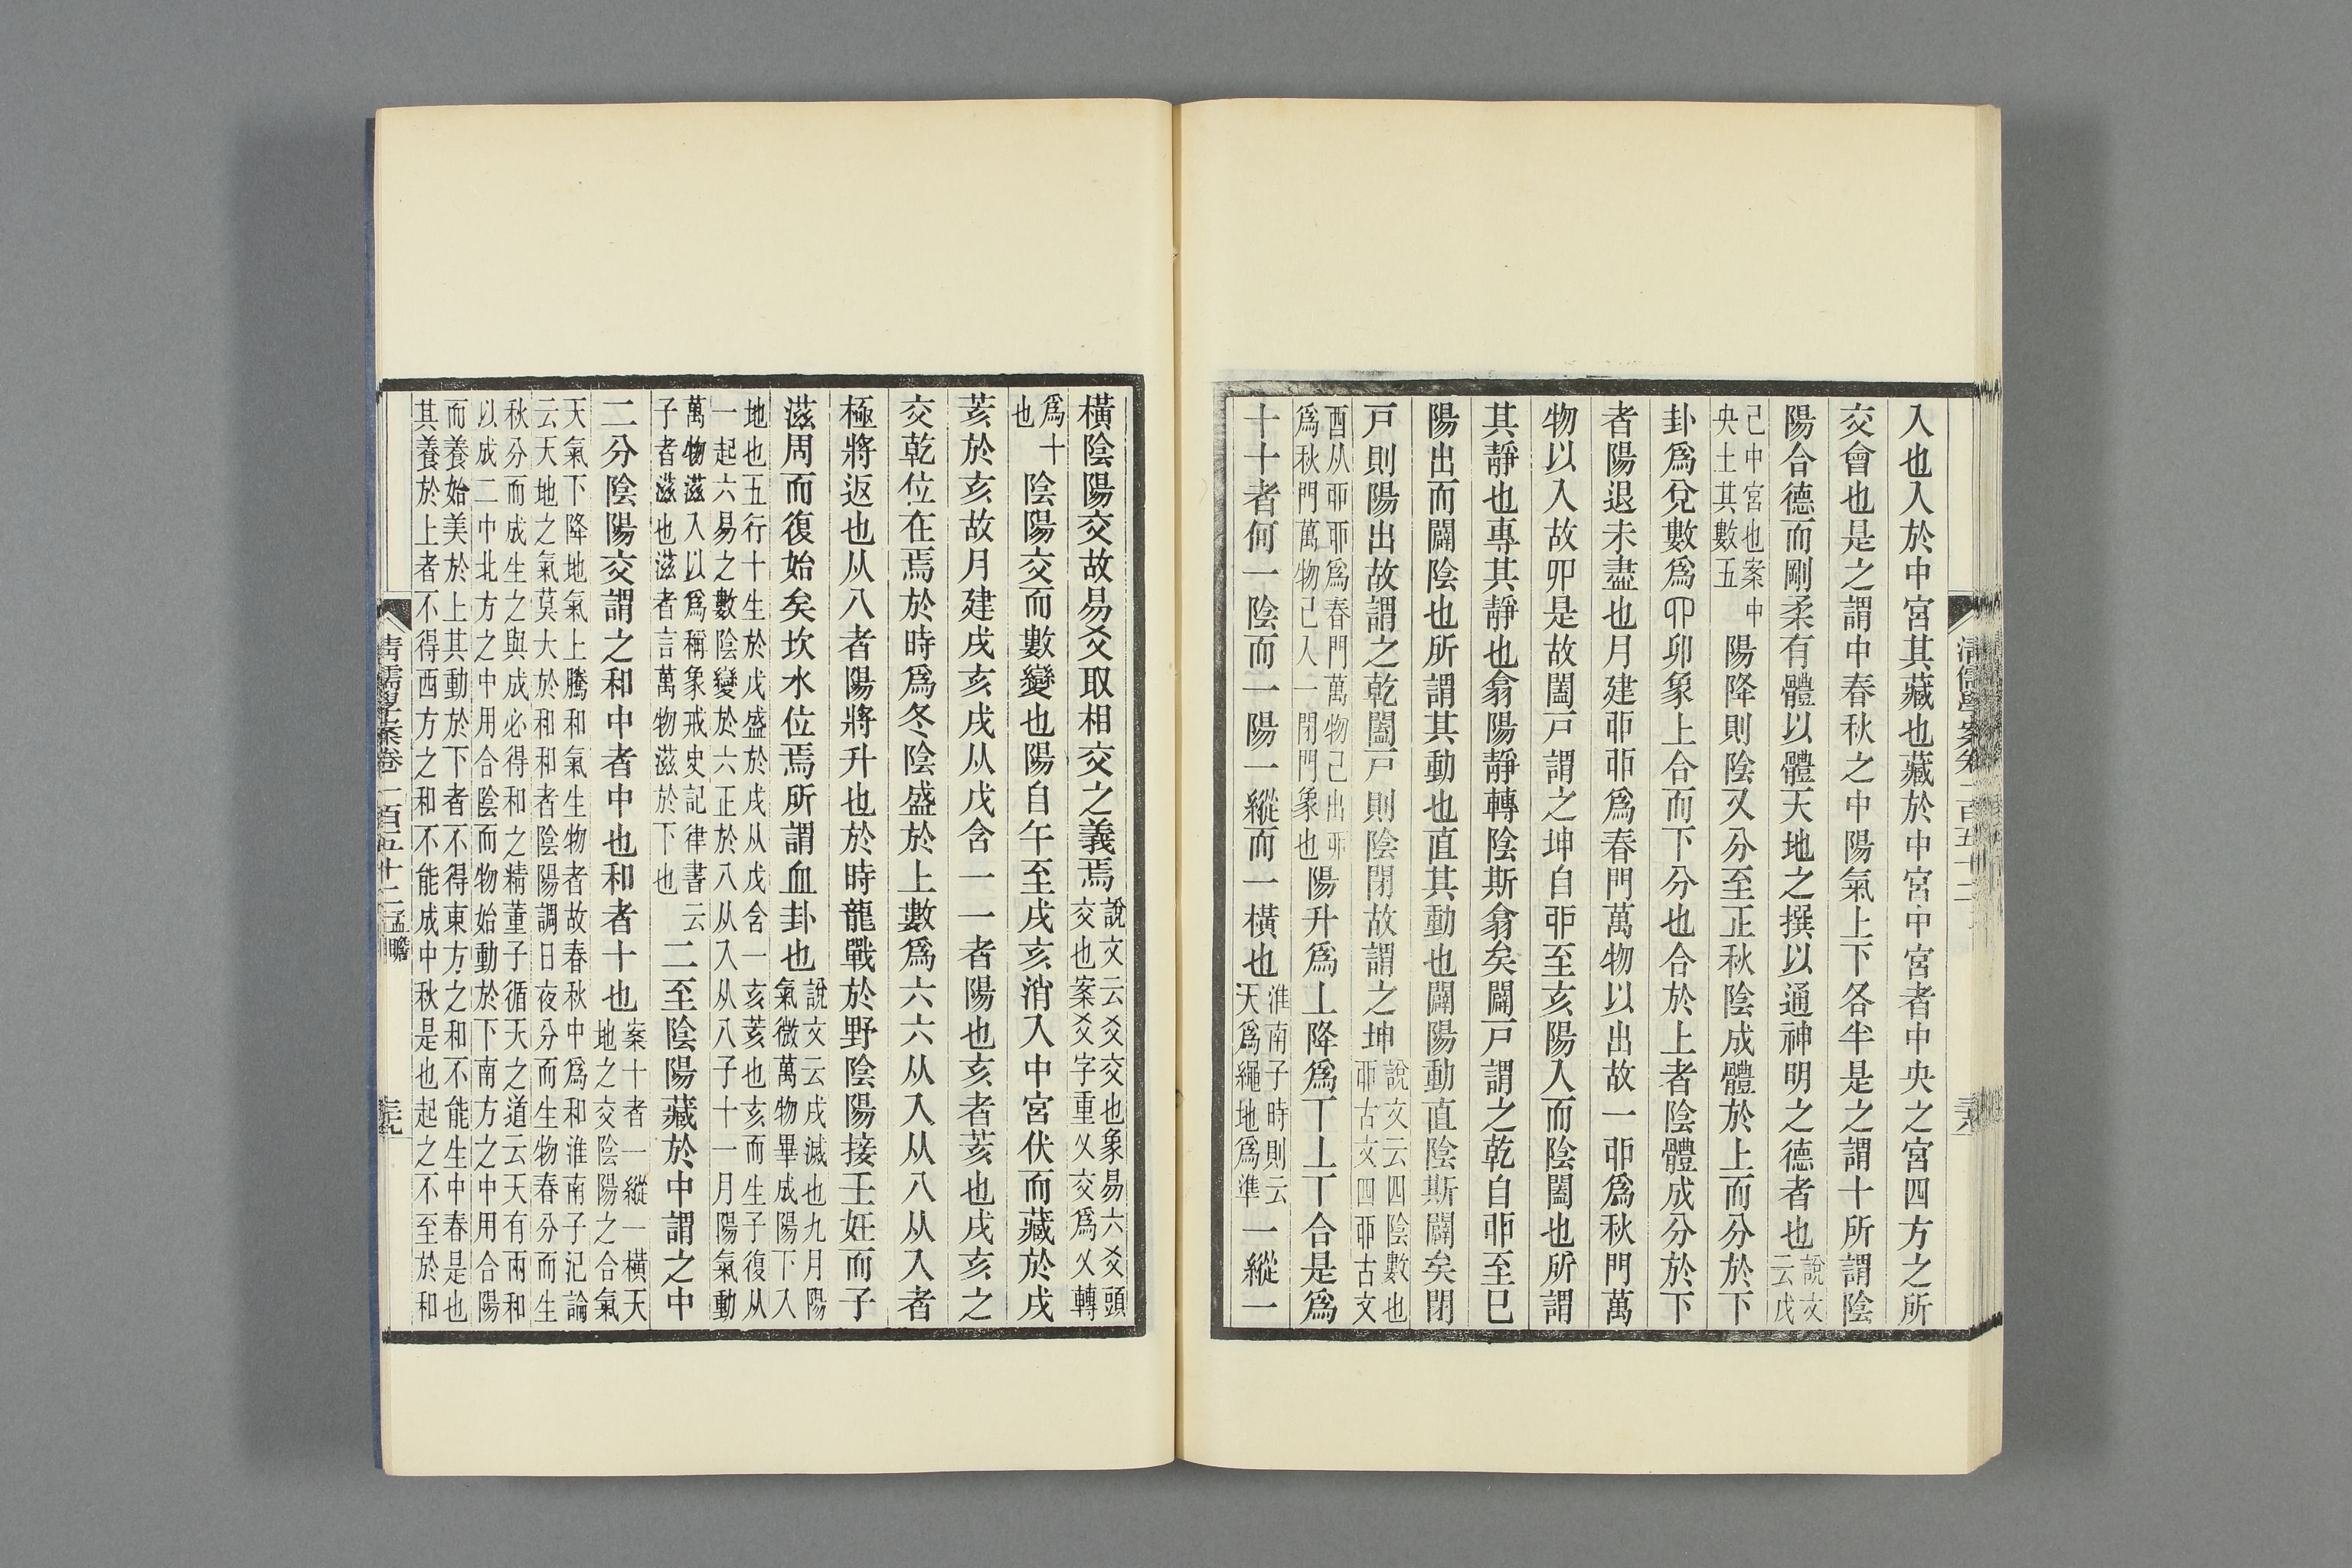 入也入於中宮其藏也藏於中宮中宮者中央之宮四方之所
交會也是之謂中春秋之中陽氣上下各半是之謂十所謂陰
陽合德而剛柔有體以體天地之撰以通神明之德者也說文云戊
己中宮也案中央土其數五陽降則陰乂分至正秋陰成體於上而分於下
卦爲兌數爲卯象上合而下分也合於上者陰體成分於下
者陽退未盡也月建丣丣爲春門萬物以出故一丣爲秋門萬
物以入故丣是故闔戸謂之坤自丣至亥陽入而陰闔也所謂
其靜也專其靜也翕陽靜轉陰斯翕矣闢戸謂之乾自丣至巳
陽出而闢陰也所謂其動也直其動也闢陽動直陰斯闢矣閉
戸則陽出故謂之乾闔戸則陰閉故謂之坤說文云四陰數也丣古文四丣古文
酉从丣丣爲春門萬物已出丣爲秋門萬物已入一閉門象也陽升爲丄降爲丅丄丅合是爲
十十者何一陰而一陽一縱而一橫也淮南子時則云天爲繩地爲準一縱一
清儒學案卷一百五十二 三八
橫陰陽交故易爻取相交之義焉說文云爻交也象易六爻頭交也案爻字重乂交爲乂轉
爲十也陰陽交而數變也陽自午至戌亥消入中宮伏而藏於戌
荄於亥故月建戌亥戌从戊含一一者陽也亥者荄也戌亥之
交乾位在焉於時爲冬陰盛於上數爲六六从入从八从入者
極將返也从八者陽將升也於時龍戰於野陰陽接壬妊而子
滋周而復始矣坎水位焉所謂血卦也說文云戌滅也九月陽氣微萬物畢成陽下入
地也五行十生於戊盛於戌从戊含一亥荄也亥而生子復从一起六易之數陰變於六正於八从入从八子十一月陽氣動
萬物滋入以爲稱象戒史記律書云子者滋也滋者言萬物滋於下也二至陰陽藏於中謂之中
二分陰陽交謂之和中者中也和者十也案十者一縱一橫天地之交陰陽之合氣
天氣下降地氣上騰和氣生物者故春秋中爲和淮南子氾論云天地之氣莫大於和和者陰陽調日夜分而生物春分而生
秋分而成生之與成必得和之精董子循天之道云天有兩和以成二中北方之中用合陰而物始動於下南方之中用合陽
而養始美於上其動於下者不得東方之和不能生中春是也其養於上者不得西方之和不能成中秋是也起之不至於和
清儒學案卷一百五十二 孟瞻 三九